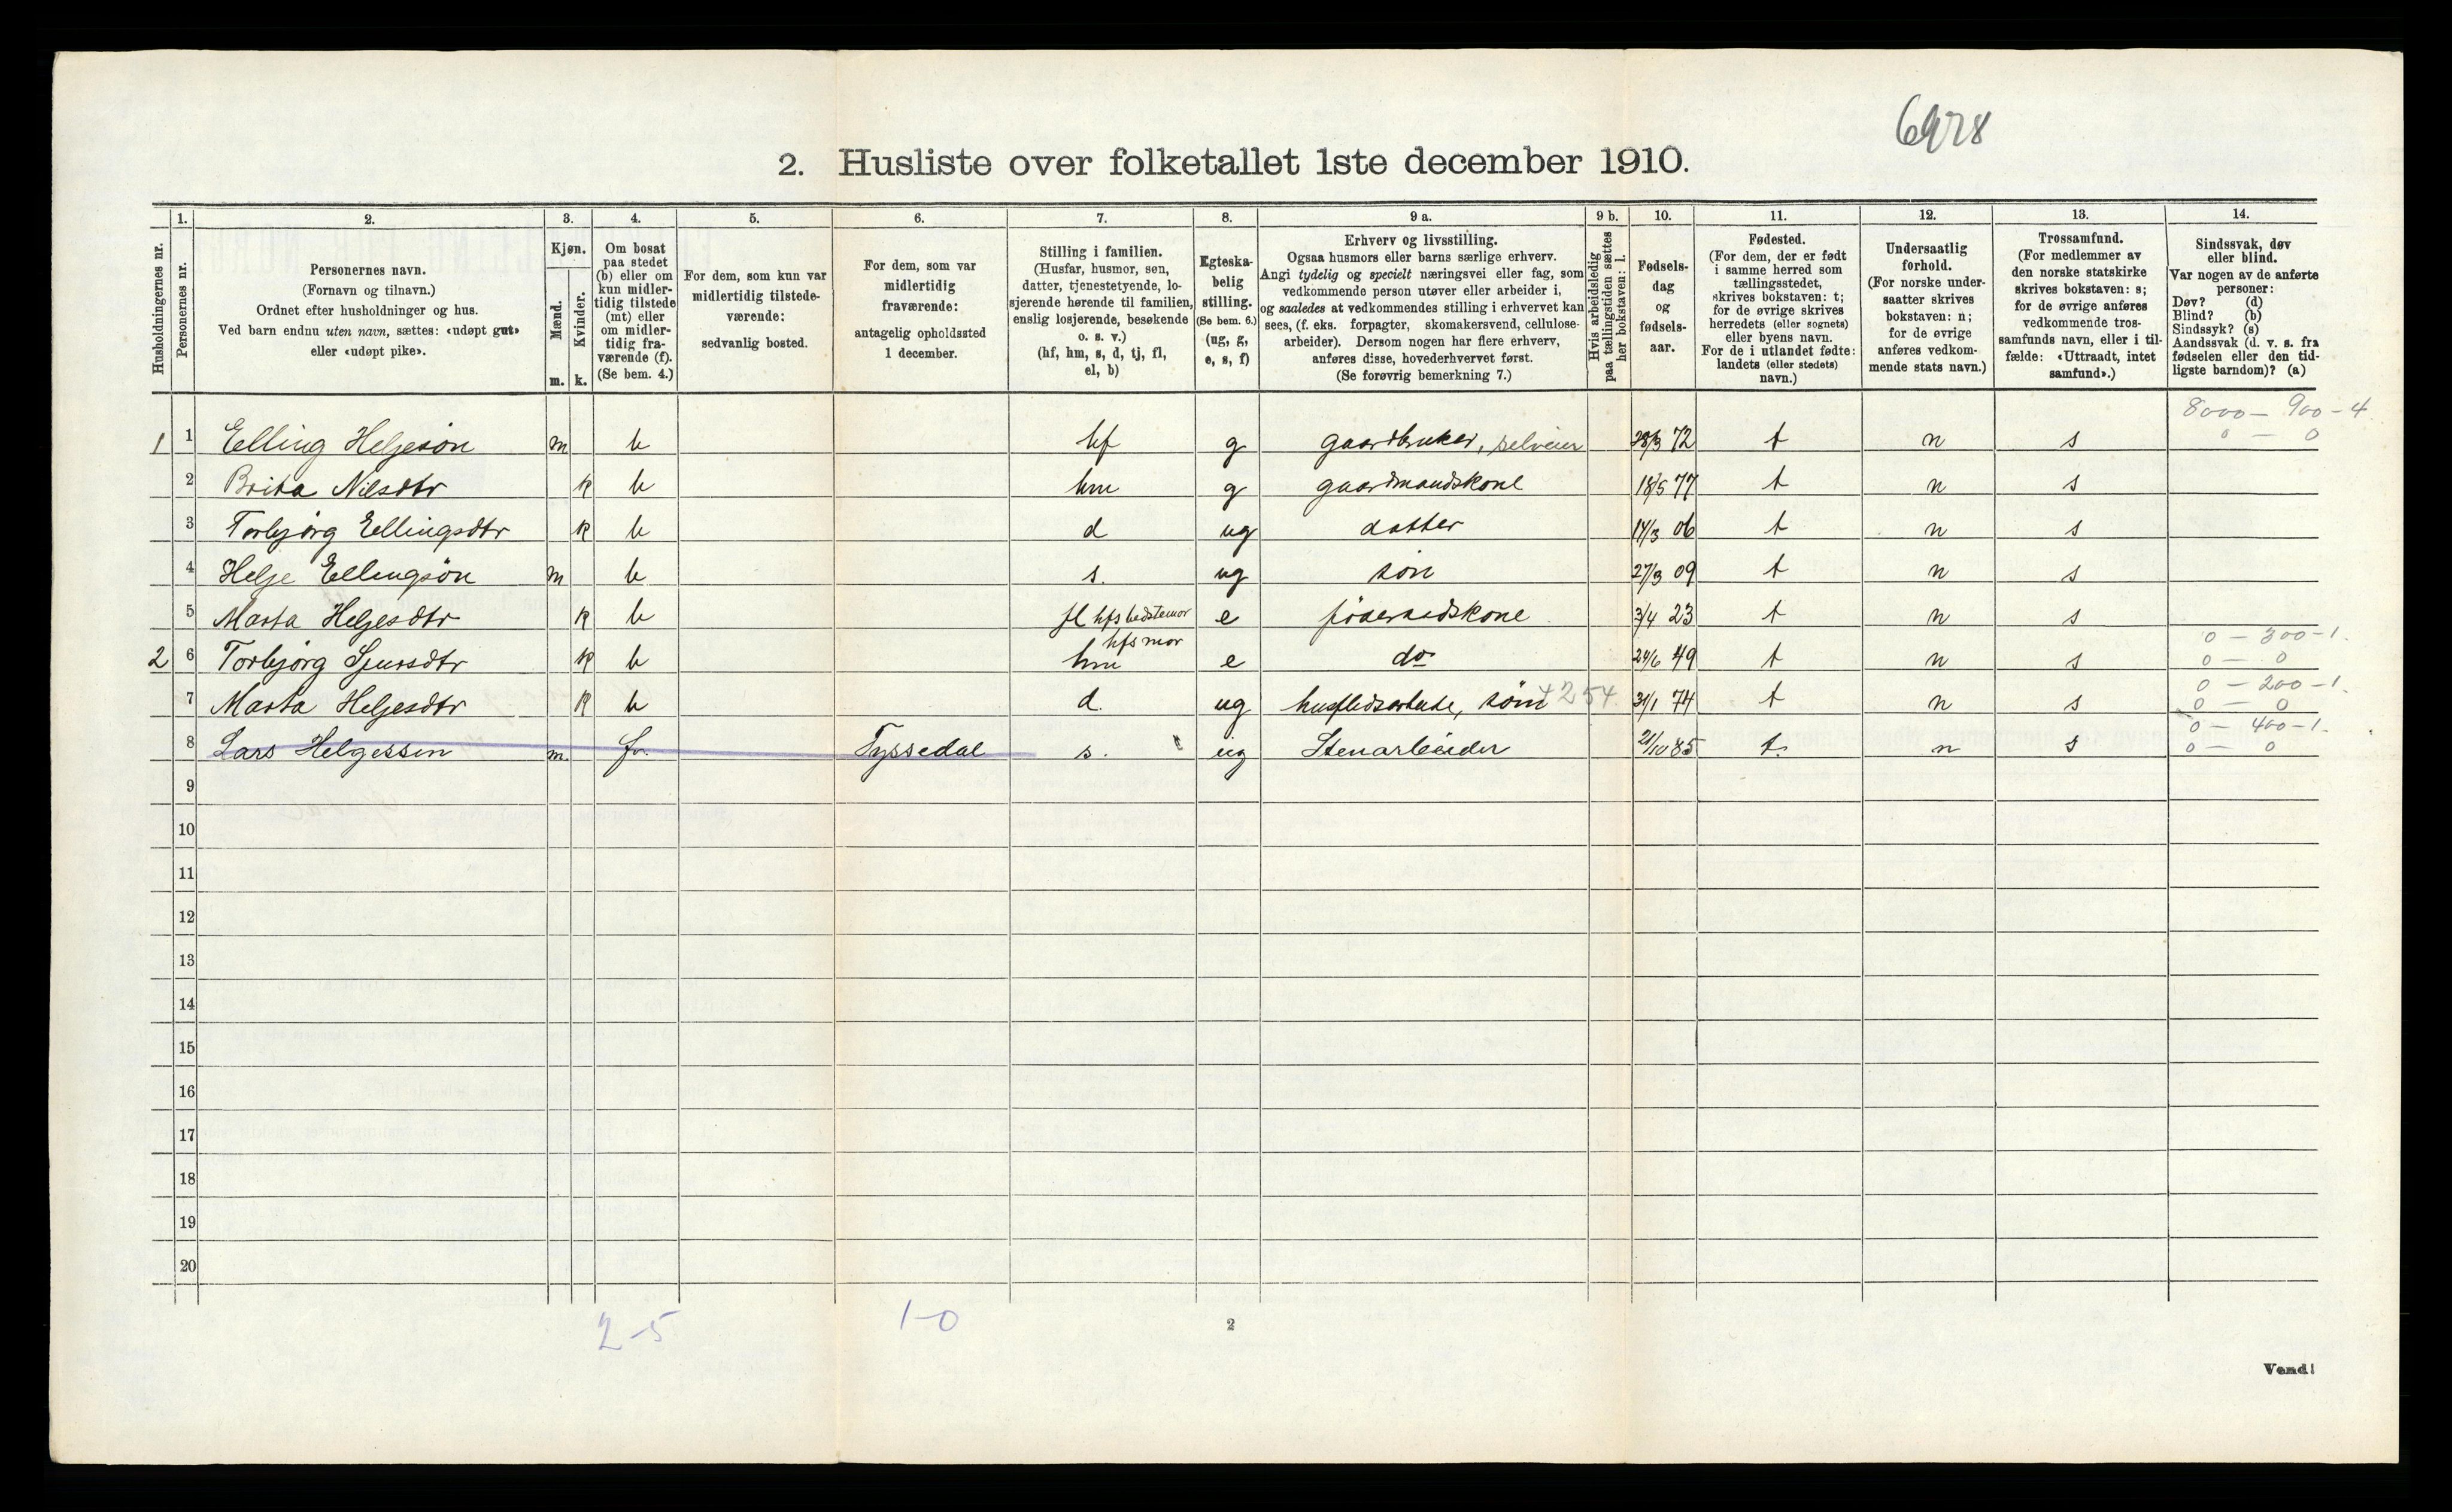 6978
2. Husliste over folketallet 1ste december 1910.
Husholdningernes nr.
1. Personernes nr.
2. Personernes navn. (Fornavn og tilnavn.) Ordnet efter husholdninger og hus. Ved barn endnu uten navn, sættes: «udøpt gut» eller «udøpt pike».
3. Kjøn. Mænd. m. Kvinder. k.
4. Om bosat paa stedet (b) eller om kun midlertidig tilstede (mt) eller om midlertidig fraværende (f). (Se bem. 4.)
5. For dem, som kun var midlertidig tilstedeværende: sedvanlig bosted.
6. For dem, som var midlertidig fraværende: antagelig opholdssted 1 december.
7. Stilling i familien. (Husfar, husmor, søn, datter, tjenestetyende, losjerende hørende til familien, enslig losjerende, besøkende o. s. v.) (hf, hm, s, d, tj, fl, el, b)
8. Egteskabelig stilling. (Se bem. 6.) (ug, g, e, s, f)
9 a. Erhverv og livsstilling. Ogsaa husmors eller barns særlige erhverv. Angi tydelig og specielt næringsvei eller fag, som vedkommende person utøver eller arbeider i, og saaledes at vedkommendes stilling i erhvervet kan sees, (f. eks. forpagter, skomakersvend, cellulosearbeider). Dersom nogen har flere erhverv, anføres disse, hovederhvervet først. (Se forøvrig bemerkning 7.)
9 b. Hvis arbeidsledig paa tællingstiden sættes her bokstaven: l.
10. Fødselsdag og fødselsaar.
11. Fødested. (For dem, der er født i samme herred som tællingsstedet, skrives bokstaven: t; for de øvrige skrives herredets (eller sognets) eller byens navn. For de i utlandet fødte: landets (eller stedets) navn.)
12. Undersaatlig forhold. (For norske undersaatter skrives bokstaven: n; for de øvrige anføres vedkommende stats navn.)
13. Trossamfund. (For medlemmer av den norske statskirke skrives bokstaven: s; for de øvrige anføres vedkommende trossamfunds navn, eller i tilfælde: «Uttraadt, intet samfund».)
14. Sindssvak, døv eller blind. Var nogen av de anførte personer: Døv? (d) Blind? (b) Sindssyk? (s) Aandssvak (d. v. s. fra fødselen eller den tidligste barndom)? (a)
8000 – 900 – 4
1 1 Elling Heljesön m b hf g gaardbruker, selveier 28/3 72 t n s 0 – 0
2 Brita Nilsdtr k b hm g gaardmandskone 18/5 77 t n s
3 Torbjörg Ellingsdtr k b d ug datter 14/3 06 t n s
4 Helje Ellingsön m b s. ug sön 27/3 09 t n s
5 Marta Heljesdtr k b fl hfs bedstemor e föderaadskone 3/4 23 t n s
hfs mor 0 – 300 – 1.
2 6 Torbjörg Sjursdtr k b hm e do 24/6 49 t n s 0 – 0
0 – 200 – 1.
7 Marta Heljesdtr k b d. ug husflidsarbeide, söm 254 31/1 74 t n s 0 – 0
0 – 400 – 1.
8 Lars Helgessen m. f. Tyssedal s. ug Stenarbeider 21/10 85 t. n s 0 – 0
9
10
11
12
13
14
15
16
17
18
19
20
2-5 1-0
2
Vend!